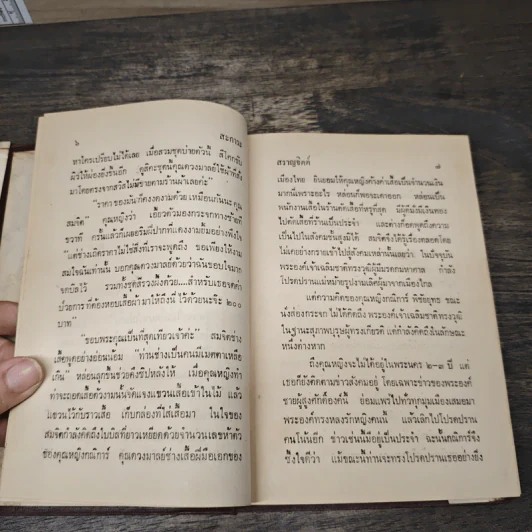 ๖
สะการะ
หาใครเปรียบไม่ได้เลย เมื่อสวมชุดบ่ายตัวนี้ สีโศกขับ
ผิวให้ผ่องยิ่งขึ้นอีก ดูสิคะชุดนี้คุณดวงมาลย์ใช้ผ้าที่สั่ง
มาโดยตรงจากสวิสไม่มีขายตามร้านผ้าเลยค่ะ"
"ราคาของมันก็คงงดงามด้วยเหมือนกันนะคุณ
สมจิต" คุณหญิงว่า เอี้ยวตัวมองกระจกทางซ้ายที
ขวาที ครั้นแล้วก็เผยอริมฝีปากที่แดงงามยิ้มอย่างพึงใจ
แต่ช่างเถิดราคาไม่ใช่สิ่งที่เราจะพูดถึง ขอเพียงให้งาม
สมใจฉันเท่านั้น บอกคุณดวงมาลย์ด้วยว่าฉันขอบใจมาก
จดบิลไว้ รวมทั้งชุดสรวงฝั่งด้วย....สำหรับเธอจดค่า
ป่วยการที่ต้องหอบเสื้อผ้ามาให้ถึงนี่ไว้ด้วยนะจ๊ะ ๒๐๐
บาท"
"ขอบพระคุณเป็นที่สุดเทียวเจ้าค่ะ" สมจิตช่าง
เสื้อพูดอย่างอ่อนน้อม "ท่านช่างเป็นคนมีเมตตาเหลือ
เกิน" หล่อนลุกขึ้นช่วยดึงซิปหลังให้ เมื่อคุณหญิงทำ
ท่าจะถอดเสื้อตัวงามนั้นจัดแจงแขวนเสื้อเข้าในไม้ แล้ว
แขวนไว้กับราวเสื้อ เก็บกล่องที่ใส่เสื้อมา ในใจของ
สมจิตกำลังคิดถึงใบบิลที่ยาวเหยียดด้วยจำนวนเลขห้าตัว
ของคุณหญิงกณิการ์ คุณดวงมาลย์ช่างเสื้อฝีมือเอกของ
สราญจิตต์
๗
เมืองไทย ยินยอมให้คุณหญิงค้างค่าเสื้อเป็นจำนวนเงิน
มากนี่เพราะอะไร หล่อนก็พอจะเดาออก หล่อนเป็น
พนักงานเสื้อในร้านตัดเสื้อที่หรูที่สุด มีผู้คนมั่งมีเงินทอง
ไปตัดเสื้อที่ร้านเป็นประจำ และต่างก็อดพูดถึงความ
เป็นไปในสังคมชั้นสูงมิได้ สมจิตจึงได้รู้เรื่องตลอดโดย
ไม่เคยย่างกรายเข้าไปสู่สังคมเหล่านั้นเลยว่า ในปัจจุบัน
พระองค์เจ้าเฉลิมชาติทรงวุฒิผู้มีมรดกมหาศาล กำลัง
โปรดปรานแม่หม้ายรูปงามเล็ดผัวมาจากเมืองไกล
แต่ความคิดของคุณหญิงกณิการ์ พิชัยยุทธ ขณะ
นั่งส่องกระจก ไม่ได้คิดถึง พระองค์เจ้าเฉลิมชาติทรงวุฒิ
ในฐานะสุภาพบุรุษผู้ทรงเกียรติ แต่กำลังคิดถึงในลักษณะ
หนึ่งต่างหาก
ถึงคุณหญิงจะไม่ได้อยู่ในพระนคร ๒-๓ ปี แต่
เธอก็ยังติดตามข่าวสังคมอยู่ โดยเฉพาะข่าวของพระองค์
ชายผู้สูงศักดิ์องค์นี้ ย่อมแพร่ไปทั่วทุกมุมเมืองเสมอมา
พระองค์ทรงหลงรักหญิงคนนี้ แล้วเลิกไปโปรดปราน
คนโน้นอีก ข่าวเช่นนี้มีอยู่เป็นประจำ ฉะนั้นกณิการ์จึง
ซึ้งใจดีว่า แม้ขณะนี้ท่านจะทรงโปรดปรานเธออย่างยิ่ง